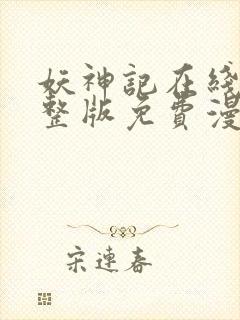 妖神記在綫
整版免費漫
宋連春